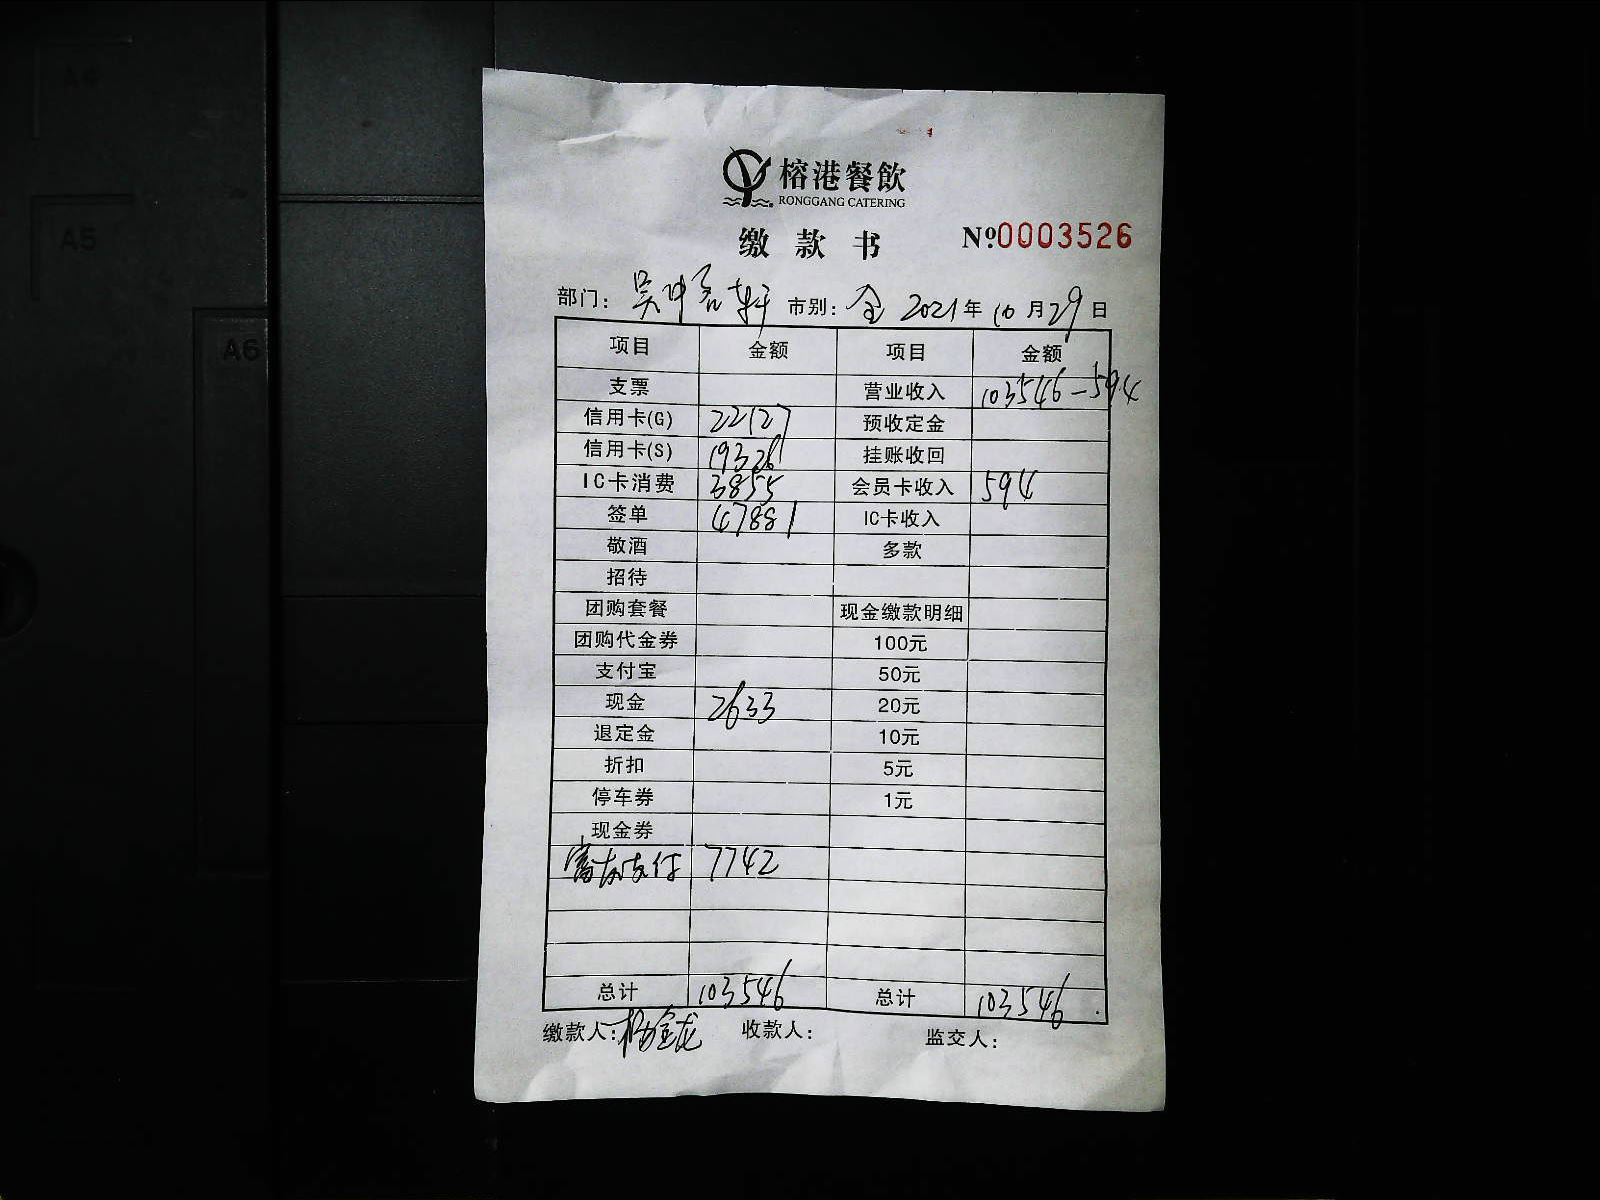 A4
A5
A6
榕港餐飲
RONGGANG CATERING
缴款书 №0003526
部门: 吴 轩 市别: 全 2021年10月29日
项目 金额 项目 金额
支票 营业收入 103546-594
信用卡(G) 22127 预收定金
信用卡(S) 19326 挂账收回
IC卡消费 3855 会员卡收入 594
签单 47881 IC卡收入
敬酒 多款
招待
团购套餐 现金缴款明细
团购代金券 100元
支付宝 50元
现金 2633 20元
退定金 10元
折扣 5元
停车券 1元
现金券
富友支付 7742
总计 103546 总计 103546
缴款人: 杨金龙 收款人: 监交人: